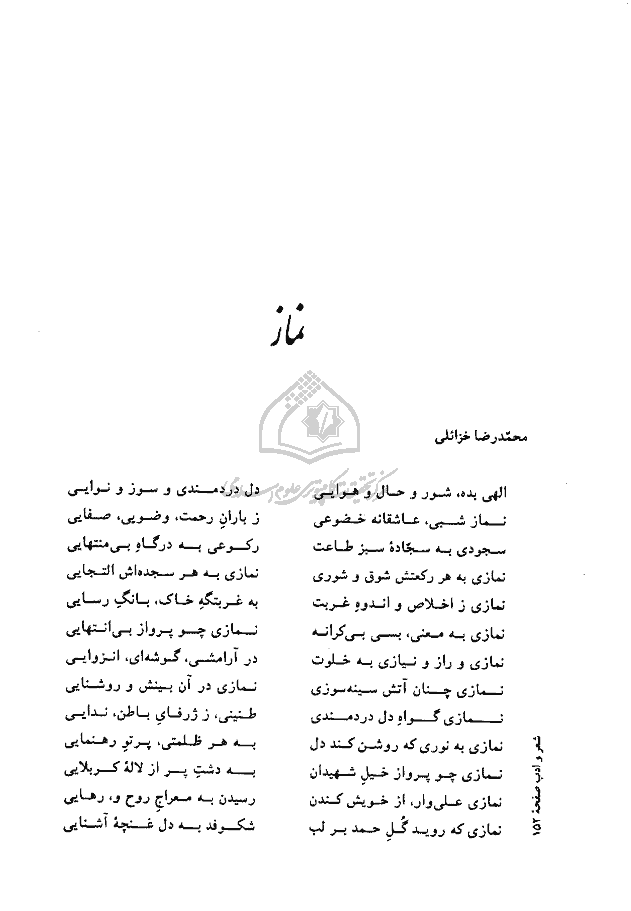 نماز
محمّدرضا خزائلی
الهی بده، شور و حال و هوایی دل دردمندی و سوز و نوایی
نماز شبی، عاشقانه خضوعی ز بارانِ رحمت، وضویی، صفایی
سجودی به سجّادهٔ سبز طاعت رکوعی به درگاهِ بی‌منتهایی
نمازی به هر رکعتش شوق و شوری نمازی به هر سجده‌اش التجایی
نمازی ز اخلاص و اندوهِ غربت به غربتگهِ خاک، بانگِ رسایی
نمازی به معنی، بسی بی‌کرانه نمازی چو پرواز بی‌انتهایی
نمازی و راز و نیازی به خلوت در آرامشی، گوشه‌ای، انزوایی
نمازی چنان آتش سینه‌سوزی نمازی در آن بینش و روشنایی
نمازی گواهِ دل دردمندی طنینی، ز ژرفایِ باطن، ندایی
نمازی به نوری که روشن کند دل به هر ظلمتی، پرتوِ رهنمایی
نمازی چو پرواز خیلِ شهیدان به دشتِ پر از لالهٔ کربلایی
نمازی علی‌وار، از خویش کندن رسیدن به معراجِ روح و، رهایی
نمازی که روید گُلِ حمد بر لب شکوفد به دل غنچهٔ آشنایی
شعر و ادب صفحهٔ ۱۵۲